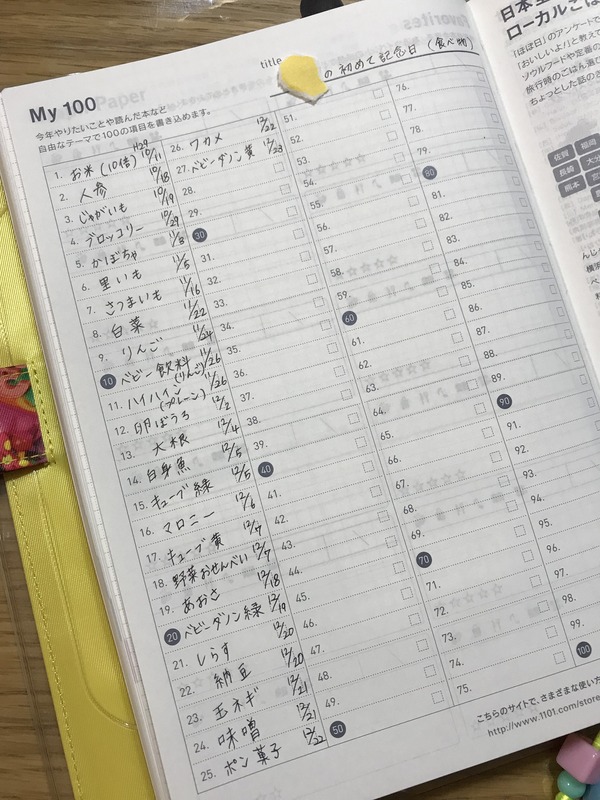 My 100 Paper
今年やりたいことや読んだ本など
自由なテーマで100の項目を書き込めます。
title の初めて記念日 (食べ物)
1. お米 (10倍) 10/11
2. 人参 10/18
3. じゃがいも 10/19
4. ブロッコリー 10/29
5. かぼちゃ 11/3
6. 里いも 11/5
7. さつまいも 11/16
8. 白菜 11/22
9. りんご 11/24
10 ベビー飲料 (りんご) 11/26
11. ハイハイン (プレーン) 11/26
12. 卵ぼうろ 12/2
13. 大根 12/4
14. 白身魚 12/5
15. キューブ緑 12/5
16. マロニー 12/6
17. キューブ黄 12/7
18. 野菜おせんべい 12/7
19. あおさ 12/18
20 ベビーダノン緑 12/19
21. しらす 12/20
22. 納豆 12/20
23. 玉ネギ 12/21
24. 味噌 12/21
25. ポン菓子 12/22
26. ワカメ 12/22
27. ベビーダノン黄 12/23
28.
29.
30
31.
32.
33.
34.
35.
36.
37.
38.
39.
40
41.
42.
43.
44.
45.
46.
47.
48.
49.
50
51.
52.
53.
54.
55.
56.
57.
58.
59.
60
61.
62.
63.
64.
65.
66.
67.
68.
69.
70
71.
72.
73.
74.
75.
76.
77.
78.
79.
80
81.
82.
83.
84.
85.
86.
87.
88.
89.
90
91.
92.
93.
94.
95.
96.
97.
98.
99.
100
こちらのサイトで、さまざまな使い方
http://www.1101.com/store
日本全
ローカルごは
「ほぼ日」のアンケートで
「おいしいよ!」と教えて
ソウルフードや定番の
旅行時のごはん選び
ちょっとした話のき
佐賀 福岡
長崎 大分
熊本